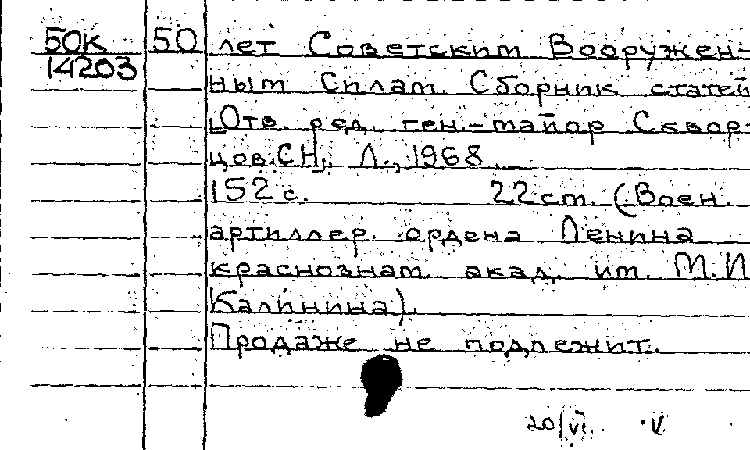 50К 50 лет Советским Вооружен-
14203 ным Силам. Сборник статей
[Отв. ред. ген.-майор Сквор-
цов С.Н. Л., 1968.
152 с. 22 ст. (Воен.
артиллер. ордена Ленина
краснознам. акад. им. М.И.
Калинина).
Продаже не подлежит.
20/VI. V